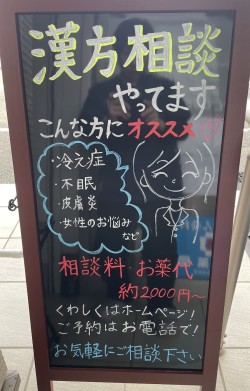 漢方相談
やってます
こんな方にオススメ♡
・冷え症
・不眠
・皮膚炎
・女性のお悩み
など
相談料・お薬代
約2000円～
くわしくはホームページ!
ご予約はお電話で!
お気軽にご相談下さい